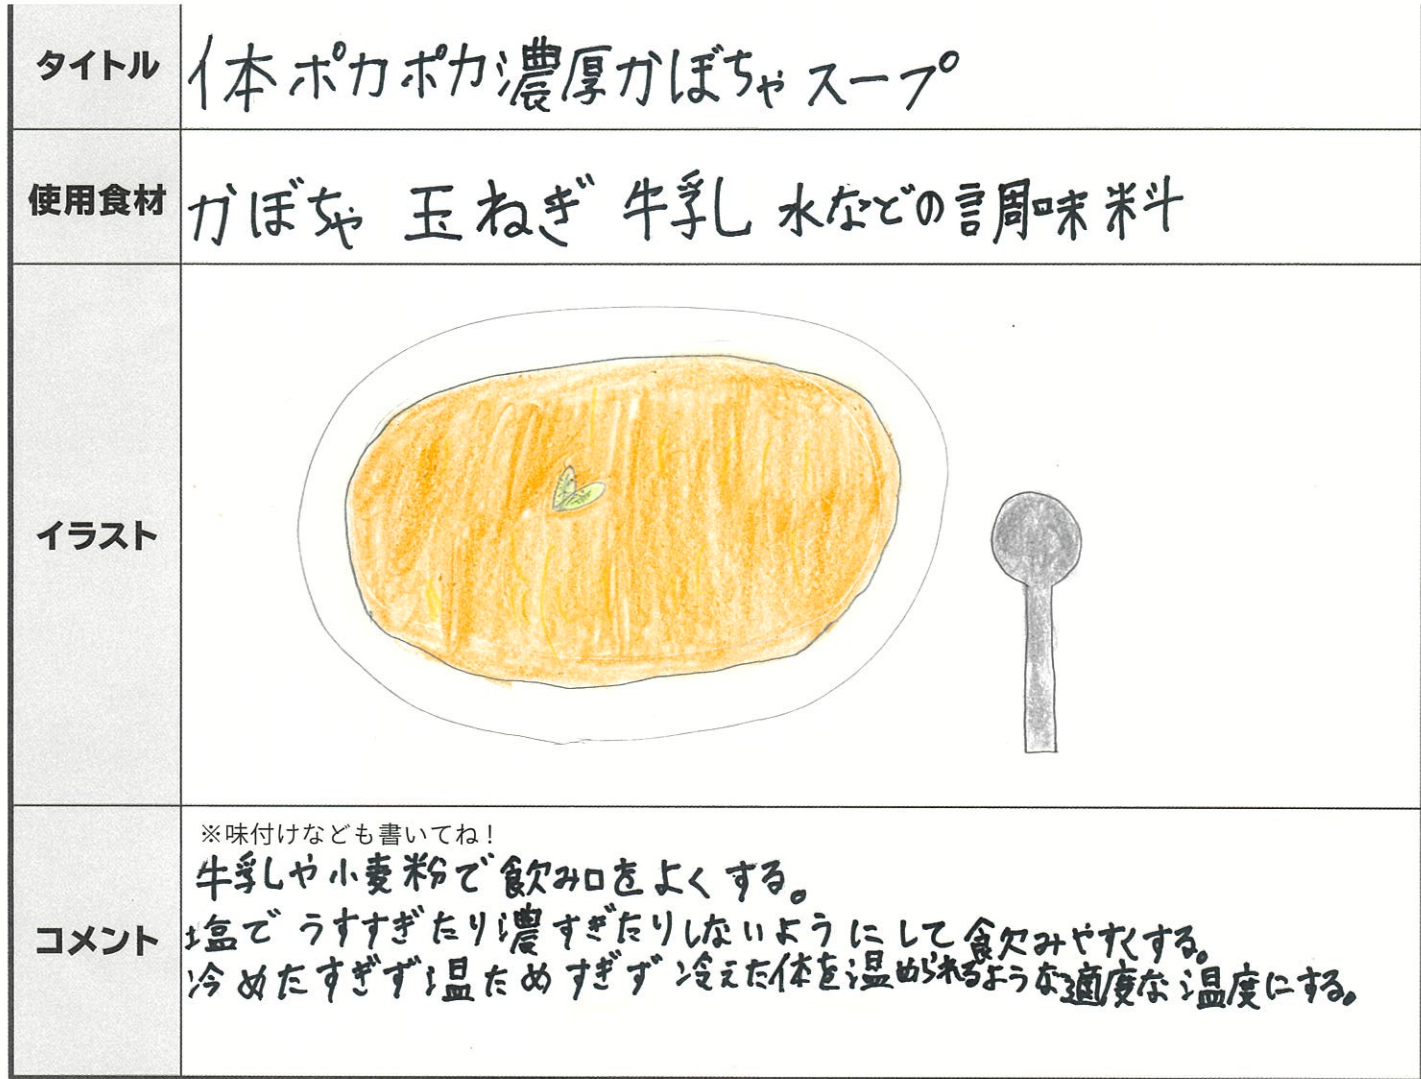 タイトル
体本ポカポカ濃厚かぼちゃスープ
使用食材
かぼちゃ 玉ねぎ 牛乳 水などの調味料
イラスト
コメント
※味付けなども書いてね！
牛乳や小麦粉で飲み口をよくする。
塩でうすすぎたり濃すぎたりしないようにして飲みやすくする。
冷めたすぎず温ためすぎず冷えた体を温められるような適度な温度にする。